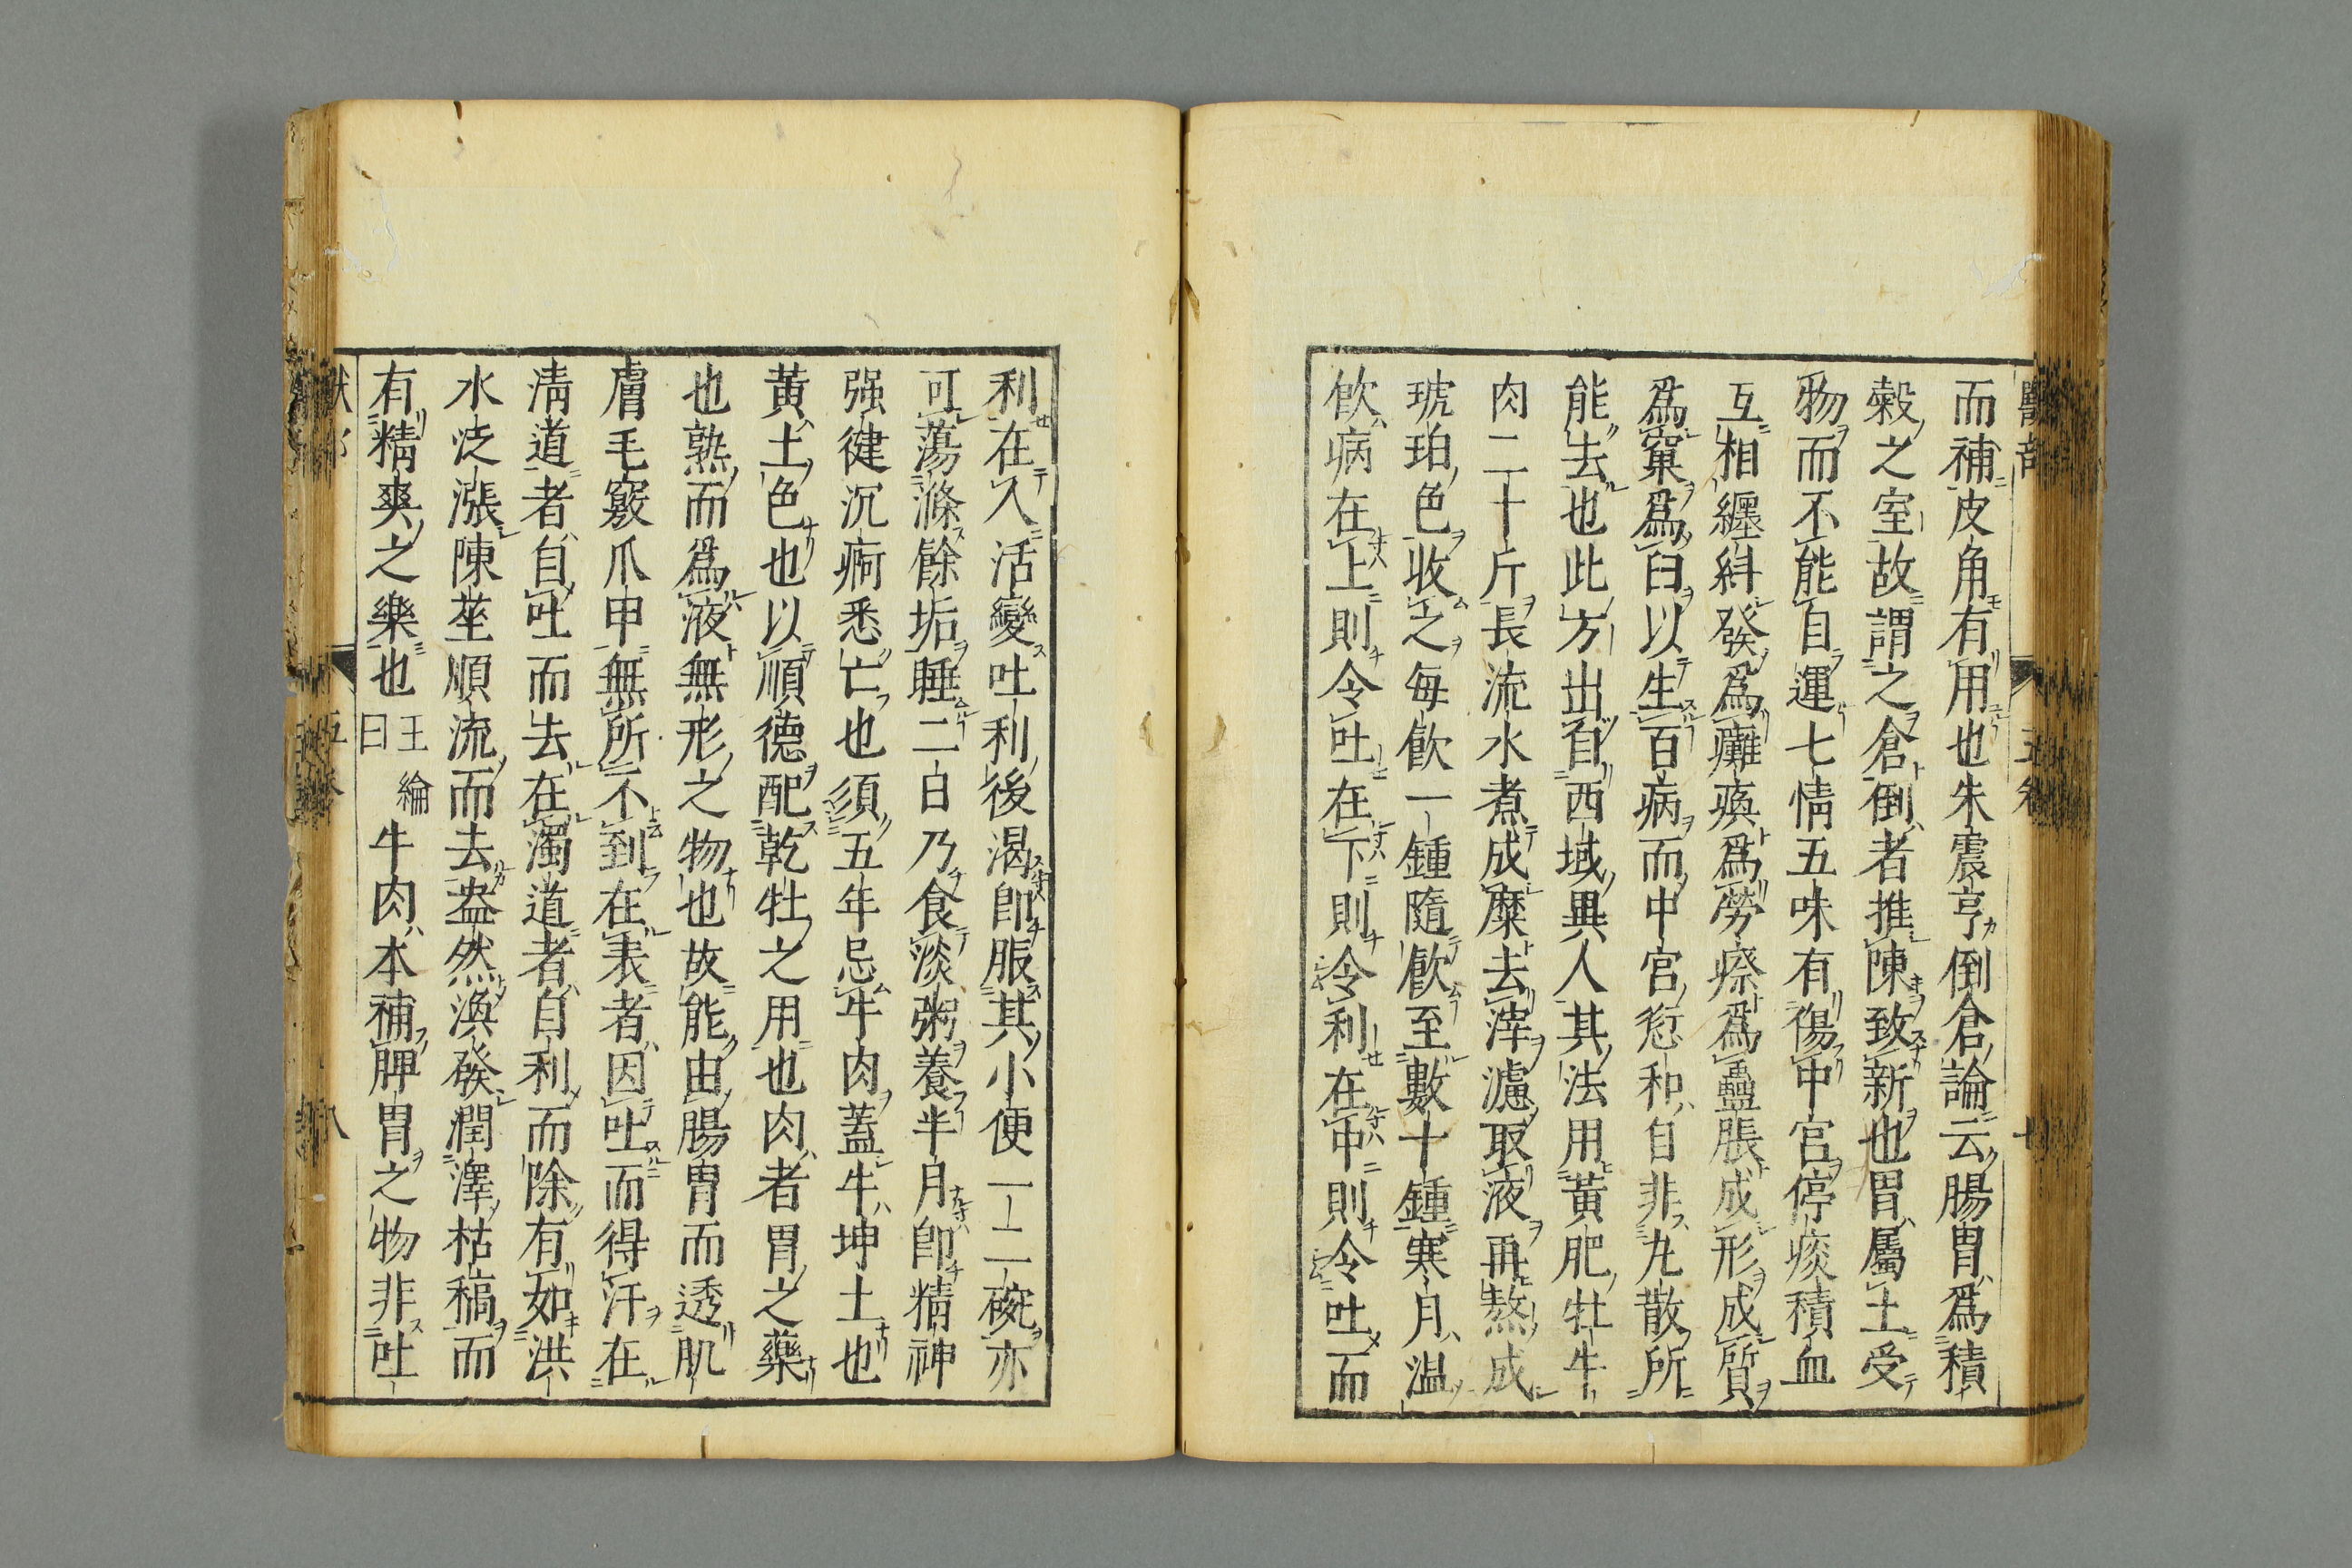 而補皮角有用也朱震亨倒倉論云腸胃爲積
穀之室故謂之倉倒者推陳致新也胃屬土受
物而不能自運七情五味有傷中宮停痰積血
互相纏糾發爲癱瘓爲勞瘵爲蠱脹成形成質
爲窠爲臼以生百病而中宮愆和自非丸散所
能去也此方出自西域異人其法用黃肥牡牛
肉二十斤長流水煮成糜去滓濾取液再熬成
琥珀色收之每飮一鍾隨飮至數十鍾寒月温
飮病在上則令吐在下則令利在中則令吐而
利在人活變吐利後渴卽服其小便一二碗亦
可蕩滌餘垢睡二日乃食淡粥養半月卽精神
强健沉痾悉亡也須五年忌牛肉蓋牛坤土也
黃土色也以順德配乾牡之用也肉者胃之藥
也熟而爲液無形之物也故能由腸胃而透肌
膚毛竅爪甲無所不到在表者因吐而得汗在
淸道者自吐而去在濁道者自利而除有如洪
水泛漲陳莝順流而去盎然渙發潤澤枯槁而
有精爽之樂也王綸曰牛肉本補脾胃之物非吐